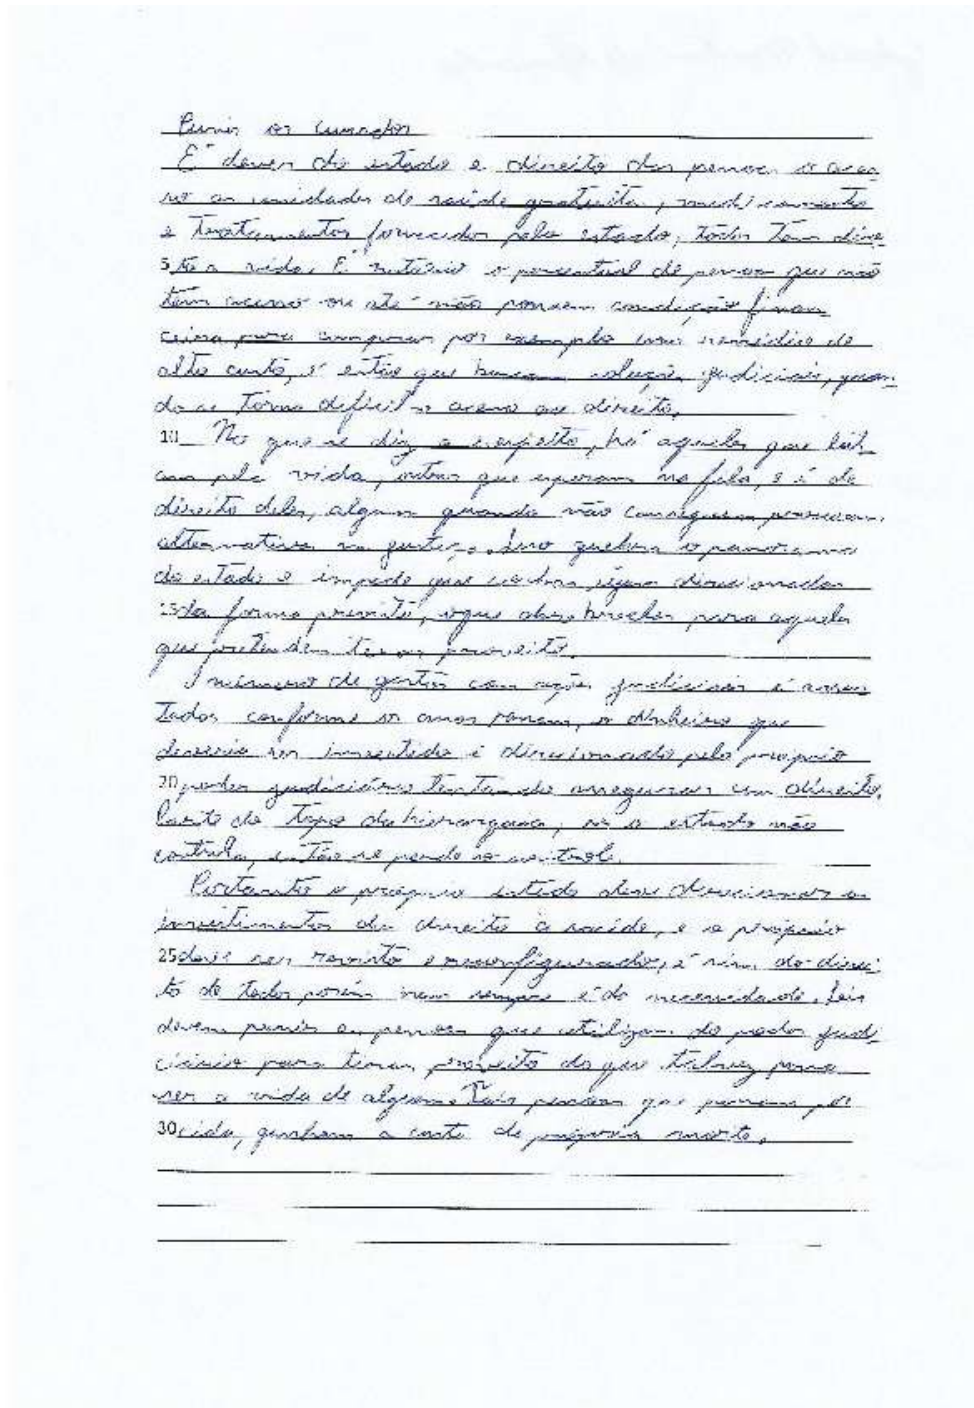 Punir os
É dever do estado e direito das pessoas o aces
so as unidades de saúde gratuita, medicamento
e tratamentos fornecidos pelo estado, todos tem dire
5 to a vida. É notório o percentual de pessoas que não
tem acesso ou até não possuem condição finan
ceira para comprar por exemplo um remédio de
alto custo, é então que buscam soluções judiciais, quan
do se torna dificil o acesso ao direito.
10 No que se diz a respeito, há aqueles que lut
am pela vida, outros que esperam na fila, e é de
direito deles, alguns quando não conseguem procuram
alternativa na justiça. Isso quebra o panorama
do estado e impede que sejam direcionadas
15 da forma prevista, oque abre brechas para aqueles
que pretendem tirar proveito.
número de gastos com ações judiciais é
tados conforme os anos passam, o dinheiro que
deveria ser investido é direcionado pelo próprio
20 poder judiciário tentando assegurar um direito.
do topo da hierarquia, se o estado não
controla, então se perde o control.
Portanto o próprio estado deve direcionar os
investimentos do direito à saúde, e o próprio
25 deve ser revisto e reconfigurado, é sim do direi
to de todos porém nem sempre é da necessidade. Leis
devem punir as pessoas que utilizam do poder judi
ciário para tirar proveito do que talvez possa
ser a vida de alguem. Pois pessoas que
30 ganham a custo de própria morte.